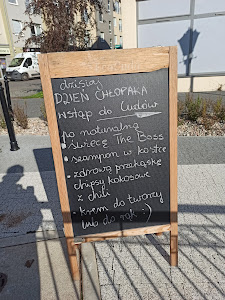 dzisiaj
DZIEŃ CHŁOPAKA
wstąp do Cudów
po naturalną
• świecę The Boss
• szampon w kostce
• zdrową przekąskę
chipsy kokosowe
z chili
• krem do twarzy
lub do rąk :)